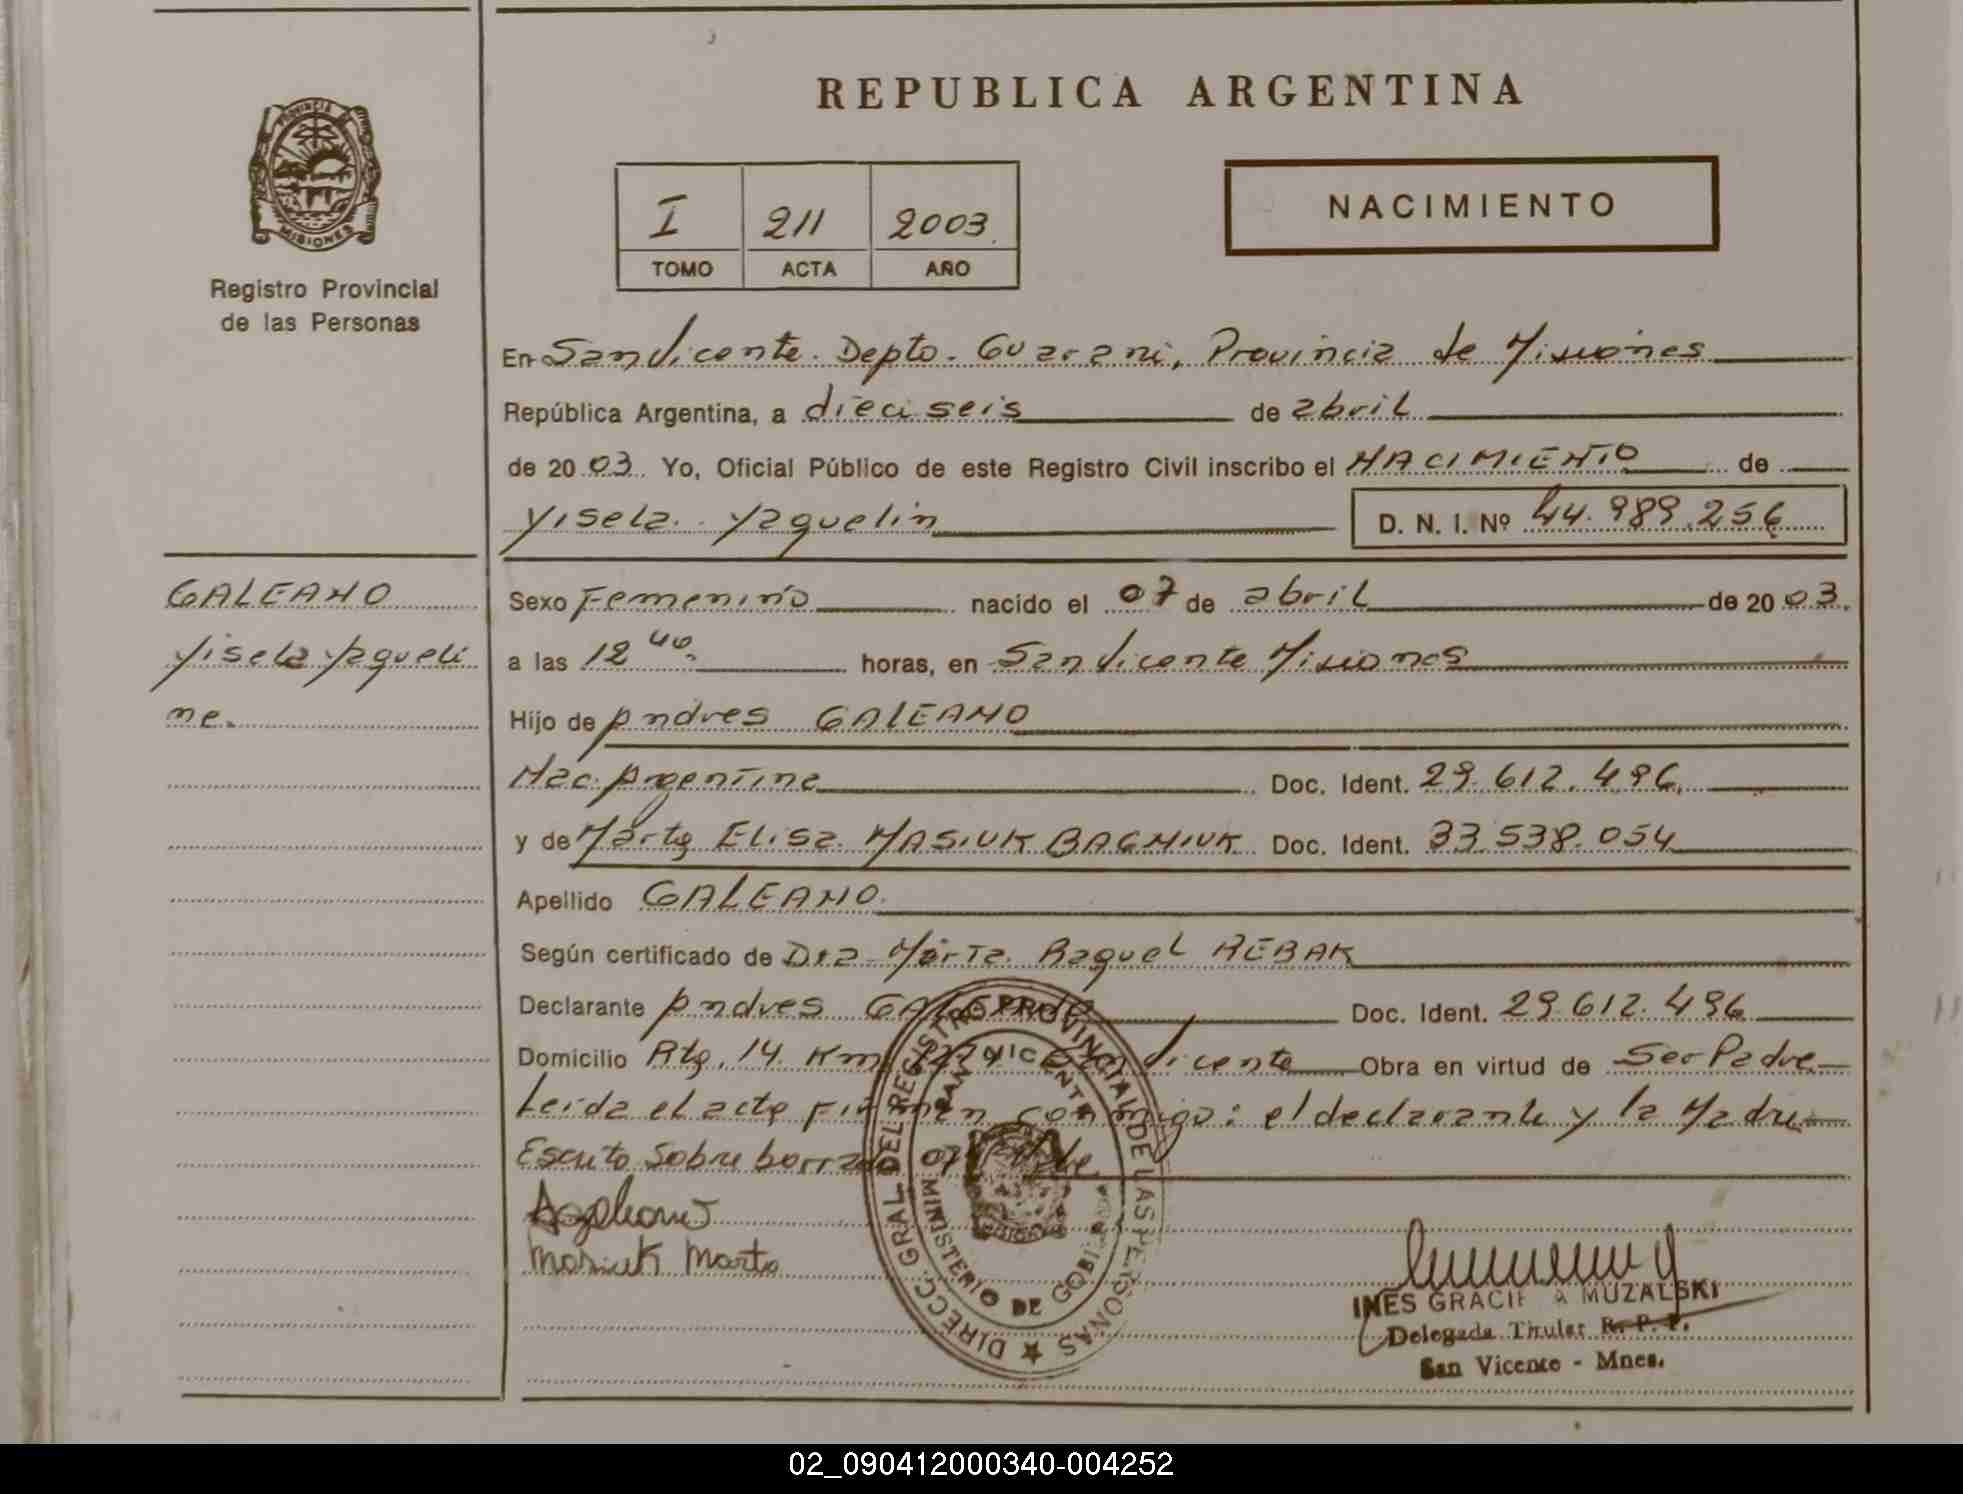 REPUBLICA ARGENTINA
PROVINCIA DE
MISIONES
Registro Provincial
de las Personas
I 211 2003
TOMO ACTA AÑO
NACIMIENTO
En San Vicente. Depto. Guarani, Provincia de Misiones
República Argentina, a dieciseis de abril
de 20 03. Yo, Oficial Público de este Registro Civil inscribo el NACIMIENTO de
Yisela Yaquelin D. N. I. Nº 44.989.256
GALEANO
Yisela Yaqueli
ne.
Sexo Femenino nacido el 07 de abril de 20 03.
a las 12 40. horas, en San Vicente Misiones
Hijo de Andres GALEANO
Nac. Argentina Doc. Ident. 29.612.496.
y de Marta Elisa MASIUK BAGNIUK Doc. Ident. 33.538.054
Apellido GALEANO.
Según certificado de Dra Marta Raquel REBAK
Declarante Andres GALEANO Doc. Ident. 29.612.496
Domicilio Rta. 14. Km San Vicente Obra en virtud de Ser Padre
Leida el acta firman conmigo: el declarante y la Madre
Escrito Sobre borrado
Masiuk Marta
DIRECC. GRAL DEL REGISTRO PROVINCIAL DE LAS PERSONAS
SAN VICENTE
MINISTERIO DE GOBI
INES GRACI A MUZALSKI
Delegada Titular R. P. P.
San Vicente - Mnes.
02_090412000340-004252